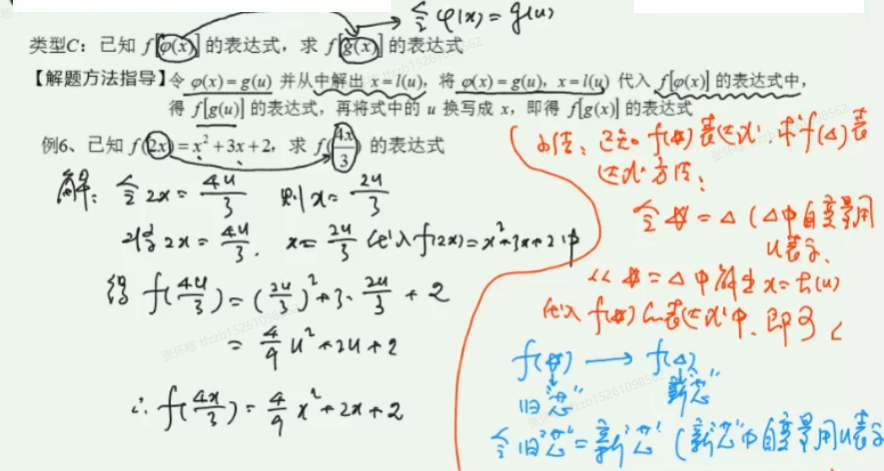 令 φ(x)=g(u)
类型C：已知 f[φ(x)] 的表达式，求 f[g(x)] 的表达式
【解题方法指导】令 φ(x)=g(u) 并从中解出 x=l(u)，将 φ(x)=g(u)，x=l(u) 代入 f[φ(x)] 的表达式中，
得 f[g(u)] 的表达式，再将式中的 u 换写成 x，即得 f[g(x)] 的表达式
例6、已知 f(2x)=x²+3x+2，求 f(4x/3) 的表达式
解：令 2x=4u/3 则 x=2u/3
将 2x=4u/3，x=2u/3 代入 f(2x)=x²+3x+2 中
得 f(4u/3)=(2u/3)²+3·2u/3+2
=4/9 u²+2u+2
∴ f(4x/3)=4/9 x²+2x+2
小结：已知 f(#) 表达式，求 f(△) 表
达式方法：
令 #=△（△中自变量用
u表示，
从 #=△ 中解出 x=h(u)
代入 f(#) 的表达式中，即可
f(#) → f(△)
旧"芯" 新"芯"
令旧"芯"=新"芯"（新"芯"中自变量用u表示